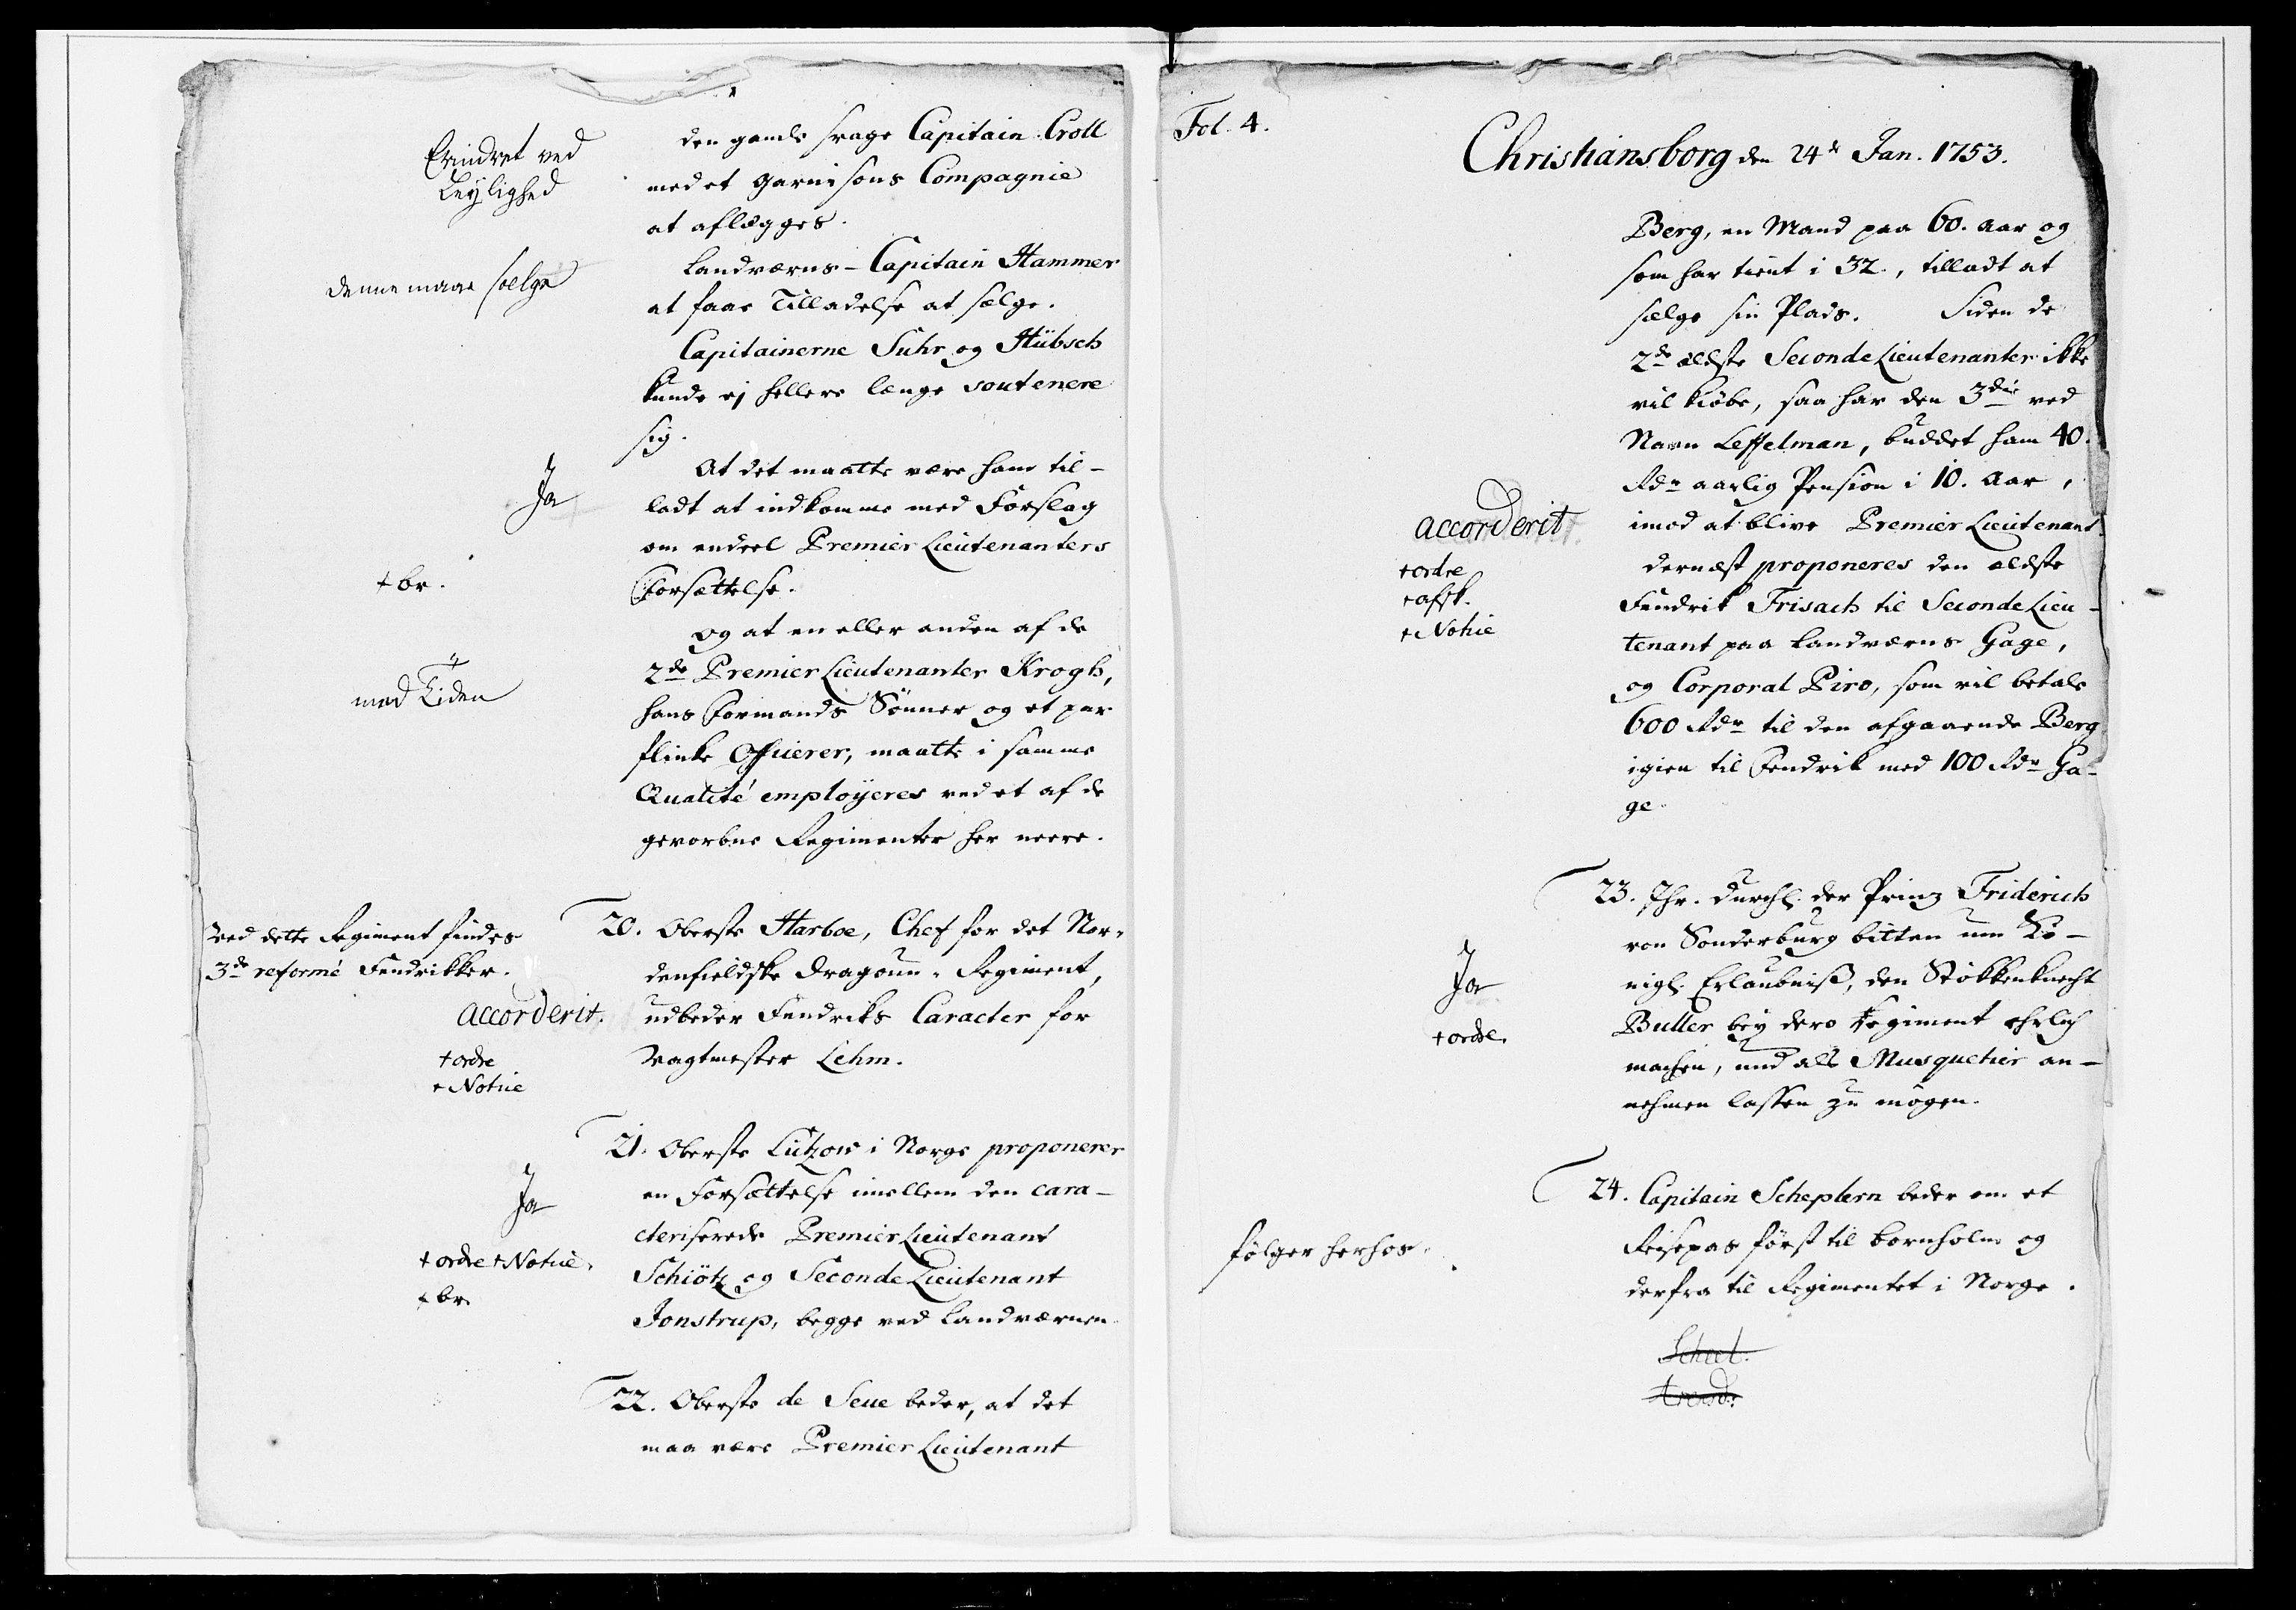 Erindret ved
Leylighed
den gamle svage Capitain Croll
med et Garnisons Compagnie
at aflægges.
denne maae sælge
Landværns-Capitain Hammer
at faae Tilladelse at sælge.
Capitainerne Suhr og Hübsch
kunde ej hellere længe soutenere
sig.
Ja
At det maatte være ham til-
ladt at indkomme med Forslag
om endeel Premier Lieutenanters
+ br.
Forsættelse.
og at en eller anden af de
med Tiden
2de Premier Lieutenanter Krogh,
hans Formands Sönner og et par
flinke Officerer, maatte i samme
Qualité employeres ved et af de
gevorbne Regimenter her neere.
Ved dette Regiment findes
3de reformé Fendrikker.
accorderit.
+ ordre
+ Notice
20. Oberste Harboe, Chef for det Nor-
denfieldske Dragoun-Regiment,
udbeder Fendriks Caracter for
Vagtmester Lehm.
Ja
+ ordre + Notice.
+ br.
21. Oberste Lützow i Norge proponerer
en Forsættelse imellem den cara-
cteriserede Premier Lieutenant
Schiötz og Seconde Lieutenant
Jonstrup, begge ved Landværnen.
22. Oberste de Seue beder, at det
maa være Premier Lieutenant
Fol. 4.
Christiansborg den 24de Jan. 1753.
Berg, en Mand paa 60. aar og
som har tient i 32., tilladt at
sælge sin Plads. Siden de
2de ældste Seconde Lieutenanter ikke
vil kiöbe, saa har den 3die ved
Navn Leffelman, buddet ham 40.
Rdr aarlig Pension i 10. Aar,
accorderit.
+ ordre
+ afsk.
+ Notice
imod at blive Premier Lieutenant.
dernæst proponeres den ældste
Fendrik Frisach til Seconde Lieu-
tenant paa Landværns Gage,
og Corporal Piro, som vil betale
600 Rdr til den afgaaende Berg
igien til Fendrik med 100 Rdr Ga-
ge.
23. Ihr. Durchl. der Prinz Friderich
von Sonderburg bitten um Kö-
Ja
+ ordre.
nigl. Erlaubniß, den Stokkenknecht
Buller bey dero Regiment ehrlich
machen, und als Musquetier an-
nehmen lassen zu mögen.
24. Capitain Scheplern beder om et
fölger herhos.
Reisepas först til Bornholm og
derfra til Regimentet i Norge.
Scheel.